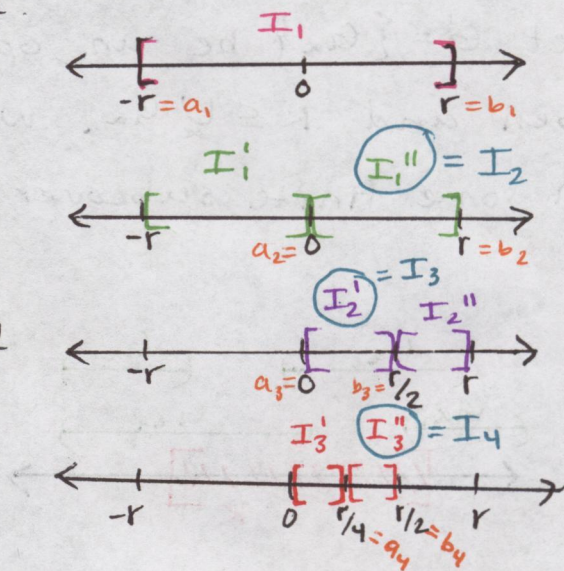 I₁
-r = a₁ 0 r = b₁
I₁' I₁'' = I₂
-r a₂ = 0 r = b₂
I₂' = I₃ I₂''
-r a₃ = 0 b₃ = r/2 r
I₃' I₃'' = I₄
-r 0 r/4 = a₄ r/2 = b₄ r